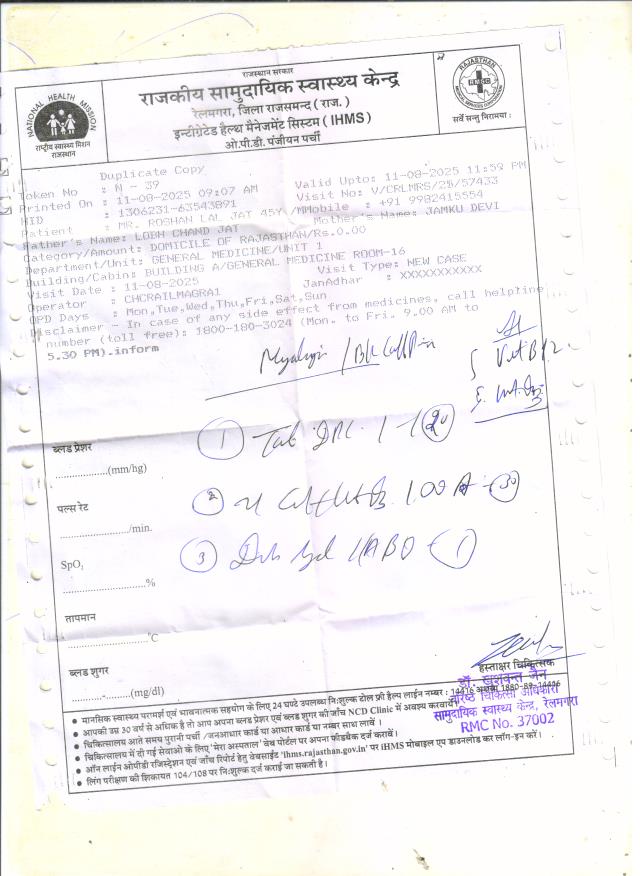 राजस्थान सरकार
राजकीय सामुदायिक स्वास्थ्य केन्द्र
रेलमगरा, जिला राजसमन्द ( राज. )
इन्टीग्रेटेड हैल्थ मैनेजमेंट सिस्टम ( IHMS )
ओ.पी.डी. पंजीयन पर्ची
NATIONAL HEALTH MISSION
राष्ट्रीय स्वास्थ्य मिशन
राजस्थान
RAJASTHAN
RMSC
MEDICAL SERVICES CORPORATION
सर्वे सन्तु निरामयाः
Duplicate Copy
Token No : N - 39
Valid Upto: 11-08-2025 11:59 PM
Printed On : 11-08-2025 09:07 AM
Visit No: V/CRLMRS/25/57433
HID : 1306231-63543891
Mobile : +91 9982415554
Patient : MR. ROSHAN LAL JAT 45Y /M
Mother's Name: JAMKU DEVI
Father's Name: LOBH CHAND JAT
Category/Amount: DOMICILE OF RAJASTHAN/Rs.0.00
Department/Unit: GENERAL MEDICINE/UNIT 1
Building/Cabin: BUILDING A/GENERAL MEDICINE ROOM-16
Visit Date : 11-08-2025
Visit Type: NEW CASE
Operator : CHCRAILMAGRA1
JanAdhar : XXXXXXXXXXX
OPD Days : Mon,Tue,Wed,Thu,Fri,Sat,Sun
Disclaimer - In case of any side effect from medicines, call helpline
number (toll free): 1800-180-3024 (Mon. to Fri. 9.00 AM to
5.30 PM).inform
Myalgia / B/L Calf Pain
Vit B12
① Tab
②
③ Gel
ब्लड प्रेशर
(mm/hg)
पल्स रेट
/min.
SpO₂
%
तापमान
°C
ब्लड शुगर
(mg/dl)
हस्ताक्षर चिकित्सक
डॉ. खुशवन्त जैन
वरिष्ठ चिकित्सा अधिकारी
सामुदायिक स्वास्थ्य केन्द्र, रेलमगरा
RMC No. 37002
• मानसिक स्वास्थ्य परामर्श एवं भावनात्मक सहयोग के लिए 24 घण्टे उपलब्ध निःशुल्क टोल फ्री हैल्प लाईन नम्बर : 14416 अथवा 1880-89-14416
• आपकी उम्र 30 वर्ष से अधिक है तो आप अपना ब्लड प्रेशर एवं ब्लड शुगर की जाँच NCD Clinic में अवश्य करवायें
• चिकित्सालय आते समय पुरानी पर्ची /जनआधार कार्ड या आधार कार्ड या नम्बर साथ लावें ।
• चिकित्सालय में दी गई सेवाओ के लिए 'मेरा अस्पताल' वेब पोर्टल पर अपना फीडबैक दर्ज करावें।
• ऑन लाईन ओपीडी रजिस्ट्रेशन एवं जाँच रिपोर्ट हेतु वेबसाईट 'ihms.rajasthan.gov.in' पर iHMS मोबाइल एप डाउनलोड कर लॉग-इन करें।
• लिंग परीक्षण की शिकायत 104/108 पर निःशुल्क दर्ज कराई जा सकती है।